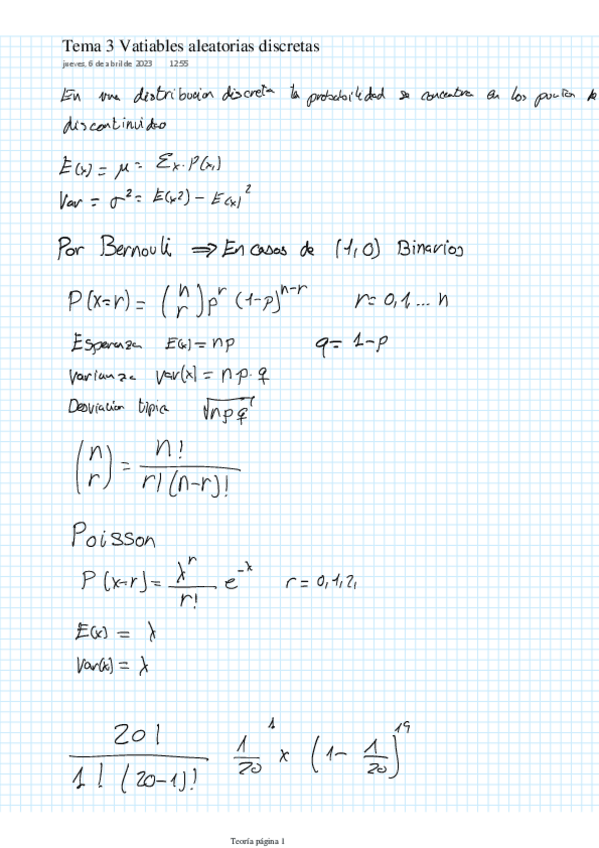 Tema 3 Vatiables aleatorias discretas
jueves, 6 de abril de 2023 12:55
En una distribucion discreta la probabilidad se concentra en los puntos de
discontinuidad
E(x) = μ = Σx · P(x)
Var = σ² = E(x²) - E(x)²
Por Bernouli ⇒ En casos de (1,0) Binarios
P(x=r) = (n r) p^r (1-p)^(n-r) r=0,1...n
Esperanza E(x) = np q = 1-p
Varianza Var(x) = np·q
Desviacion tipica √npq
(n r) = n! / r!(n-r)!
Poisson
P(x=r) = λ^r / r! e^-λ r = 0,1,2,
E(x) = λ
Var(x) = λ
20! / 1!(20-1)! 1/20^1 x (1 - 1/20)^19
Teoría página 1